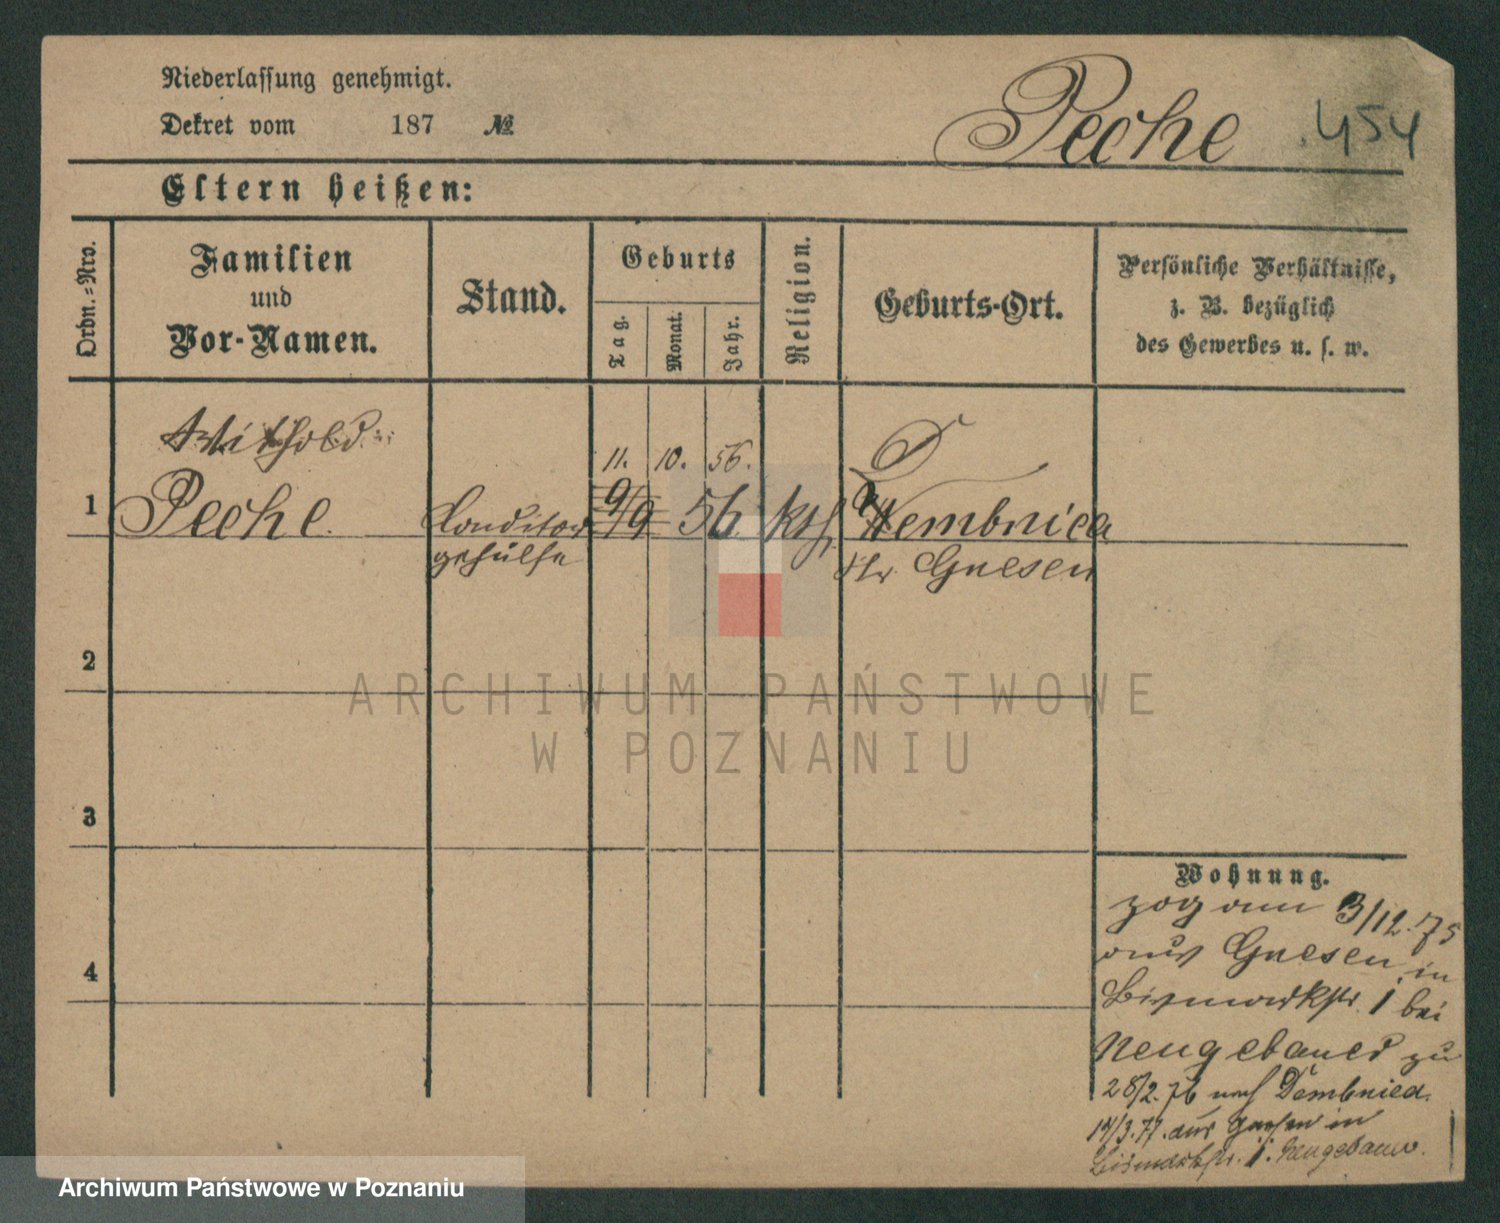 Niederlassung genehmigt.
Dekret vom 187 №
Peche .454
Eltern heißen:
Ordn.-Nro.
Familien
und
Vor-Namen.
Stand.
Geburts
Tag.
Monat.
Jahr.
Religion.
Geburts-Ort.
Persönliche Verhältnisse,
z. B. bezüglich
des Gewerbes u. s. w.
Withold
11. 10. 56.
1 Peche Conditor 9/9 56 kth Dembnica
gehülfe Kr. Gnesen
2
3
4
Wohnung.
zog am 3/12.75
aus Gnesen in
Bismarkstr. 1 bei
Neugebauer zu
28/2.76 nach Dembnica.
14/3.77. aus Gnesen in
Bismarkstr. 1. Neugebauer.
ARCHIWUM PAŃSTWOWE
W POZNANIU
Archiwum Państwowe w Poznaniu